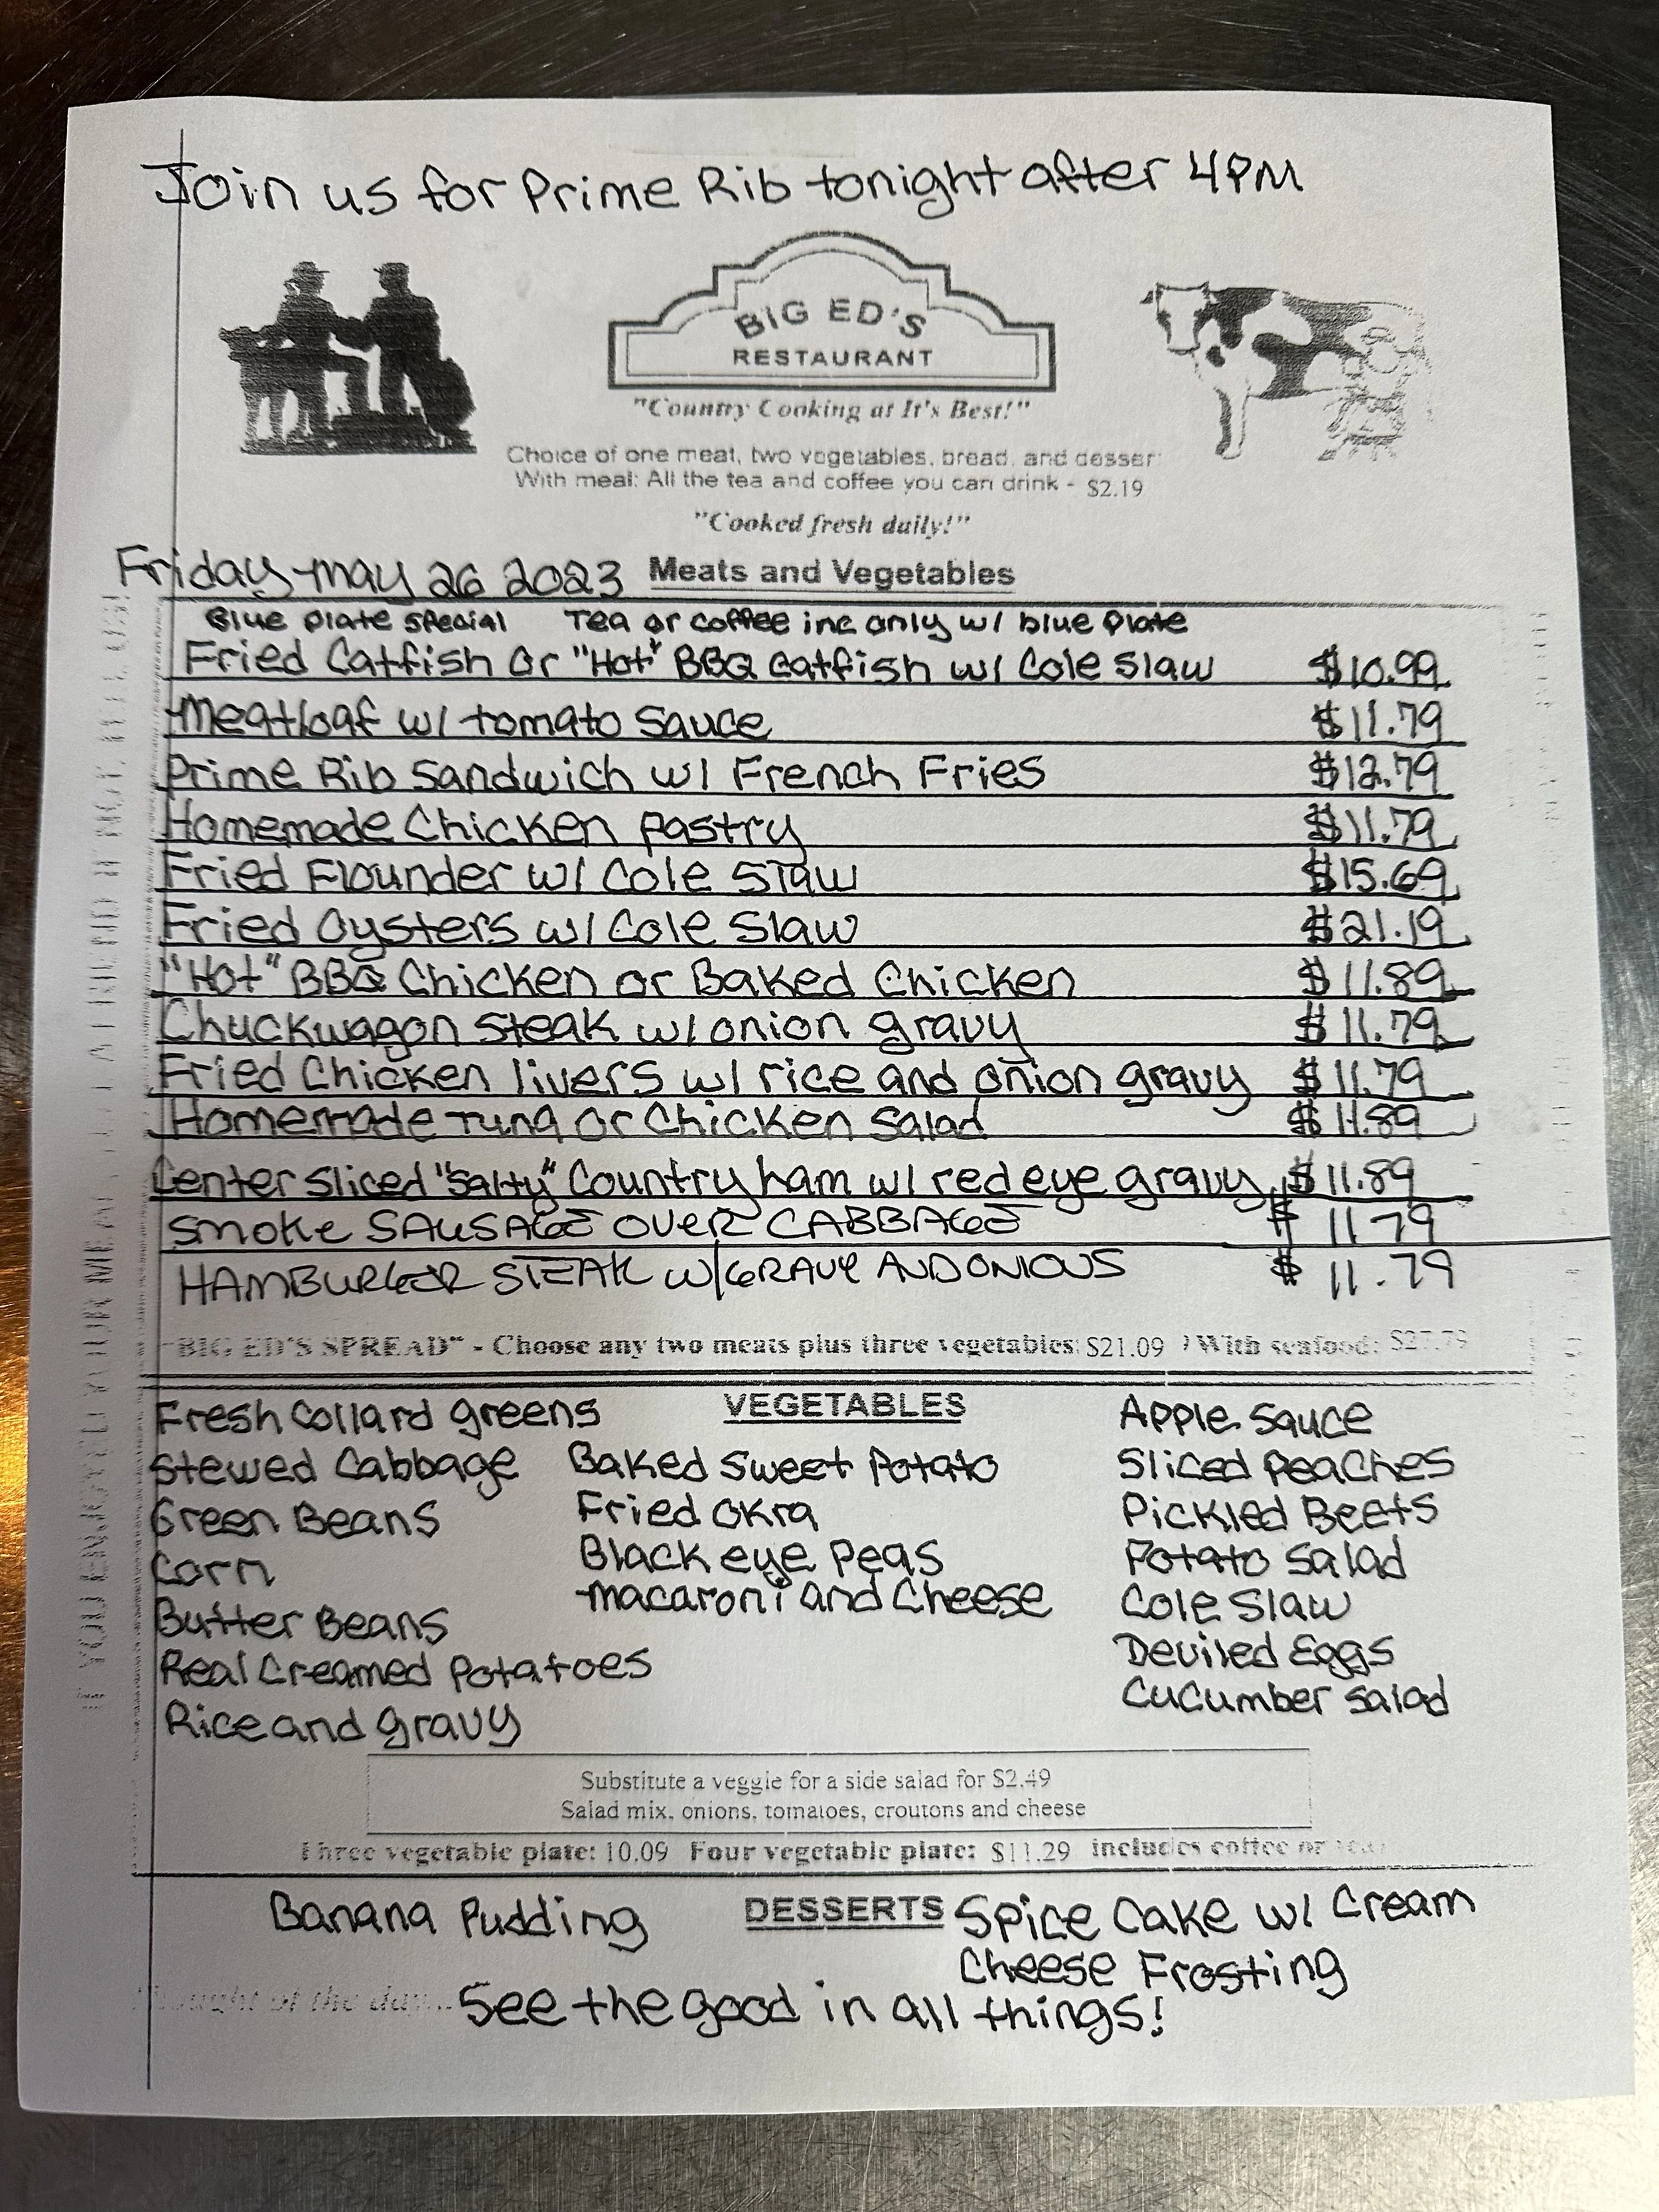 Join us for Prime Rib tonight after 4PM
BIG ED'S
RESTAURANT
"Country Cooking at It's Best!"
Choice of one meat, two vegetables, bread, and desser
With meal: All the tea and coffee you can drink - $2.19
"Cooked fresh daily!"
Friday may 26 2023 Meats and Vegetables
Blue plate special Tea or coffee inc only w/ blue plate
Fried Catfish or "Hot" BBQ catfish w/ Cole Slaw $10.99
Meatloaf w/ tomato sauce $11.79
Prime Rib Sandwich w/ French Fries $12.79
Homemade Chicken pastry $11.79
Fried Flounder w/ Cole Slaw $15.69
Fried Oysters w/ Cole Slaw $21.19
"Hot" BBQ Chicken or Baked Chicken $11.89
Chuckwagon steak w/ onion gravy $11.79
Fried Chicken livers w/ rice and onion gravy $11.79
Homemade Tuna or Chicken Salad $11.89
Center Sliced "Salty" Country ham w/ red eye gravy $11.89
Smoke SAUSAGE OVER CABBAGE $11 79
HAMBURGER STEAK W/GRAVY AND ONIONS $11.79
"BIG ED'S SPREAD" - Choose any two meats plus three vegetables: $21.09 With seafood: $27.79
VEGETABLES
Fresh Collard greens
Stewed Cabbage
Green Beans
Corn
Butter Beans
Real Creamed Potatoes
Rice and gravy
Baked Sweet Potato
Fried Okra
Black eye Peas
Macaroni and Cheese
Apple Sauce
Sliced Peaches
Pickled Beets
Potato Salad
Cole Slaw
Deviled Eggs
Cucumber Salad
Substitute a veggie for a side salad for $2.49
Salad mix, onions, tomatoes, croutons and cheese
Three vegetable plate: 10.09 Four vegetable plate: $11.29 includes coffee or tea
DESSERTS
Banana Pudding
Spice Cake w/ Cream
Cheese Frosting
Thought of the day... See the good in all things!